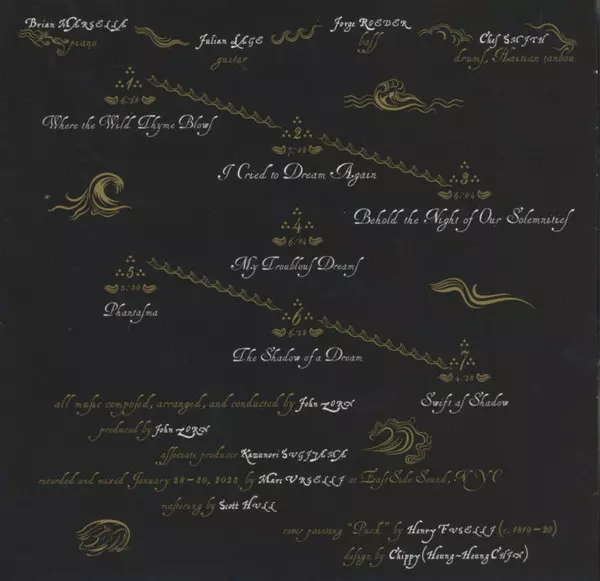 Brian MARSELLA
piano
Julian LAGE
guitar
Jorge ROEDER
bass
Ches SMITH
drums, Haitian tanbou
1
Where the Wild Thyme Blows
2
I Cried to Dream Again
3
6:04
Behold the Night of Our Solemnities
4
My Troublous Dreams
5
Phantasma
6
The Shadow of a Dream
7
4:38
Swift as Shadow
all music composed, arranged, and conducted by John ZORN
produced by John ZORN
associate producer Kazunori SUGIYAMA
recorded and mixed January 28–30, 2023 by Marc URSELLI at EastSide Sound, NYC
mastering by Scott HULL
cover painting "Puck" by Henry FUSELLI (c. 1810–20)
design by Chippy (Heung-Heung CHIN)